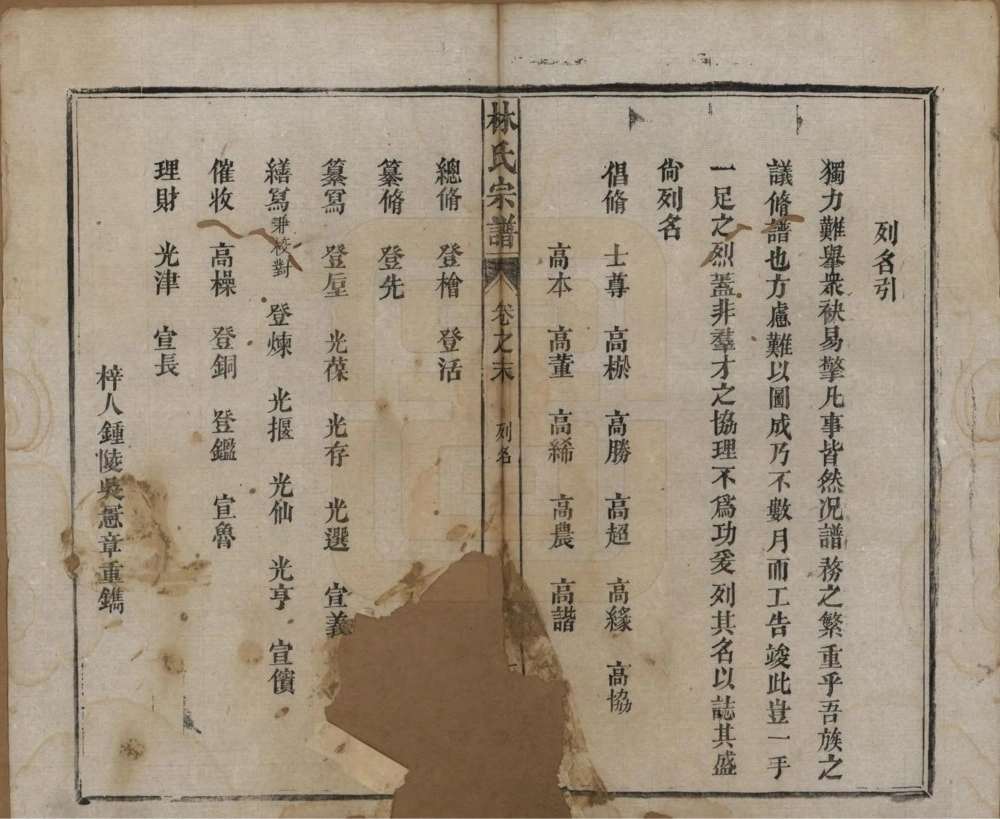 列名引
獨力難舉衆袂易擎凡事皆然况譜務之繁重乎吾族之
議脩譜也方慮難以圖成乃不數月而工告竣此豈一手
一足之烈蓋非羣才之協理不爲功爰列其名以誌其盛
尙列名
倡脩 士尊 高 高勝 高超 高緣 高協
高本 高董 高絺 高農 高諧
林氏宗譜 卷之末 列名
總脩 登檜 登活
纂脩 登先
纂寫 登垕 光葆 光存 光選 宣義
繕寫兼校對 登煉 光揠 光仙 光亨 宣儐
催收 高橾 登銅 登鑑 宣魯
理財 光津 宣長
梓人鍾陵吳憲章重鐫